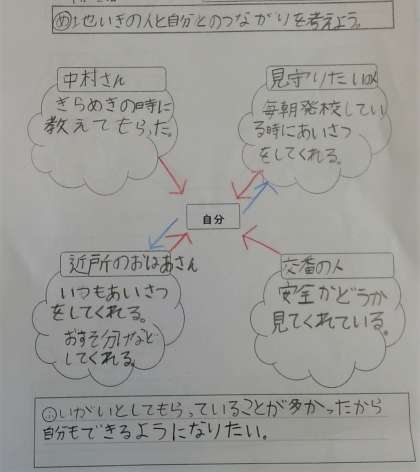 め 地いきの人と自分とのつながりを考えよう。
中村さん
きらめきの時に
教えてもらった。
見守りたいの人
毎朝発校してい
る時にあいさつ
をしてくれる。
自分
近所のおばあさん
いつもあいさつ
をしてくれる。
おすそ分けなど
してくれる。
交番の人
安全かどうか
見てくれている。
ふ いがいとしてもらっていることが多かったから
自分もできるようになりたい。